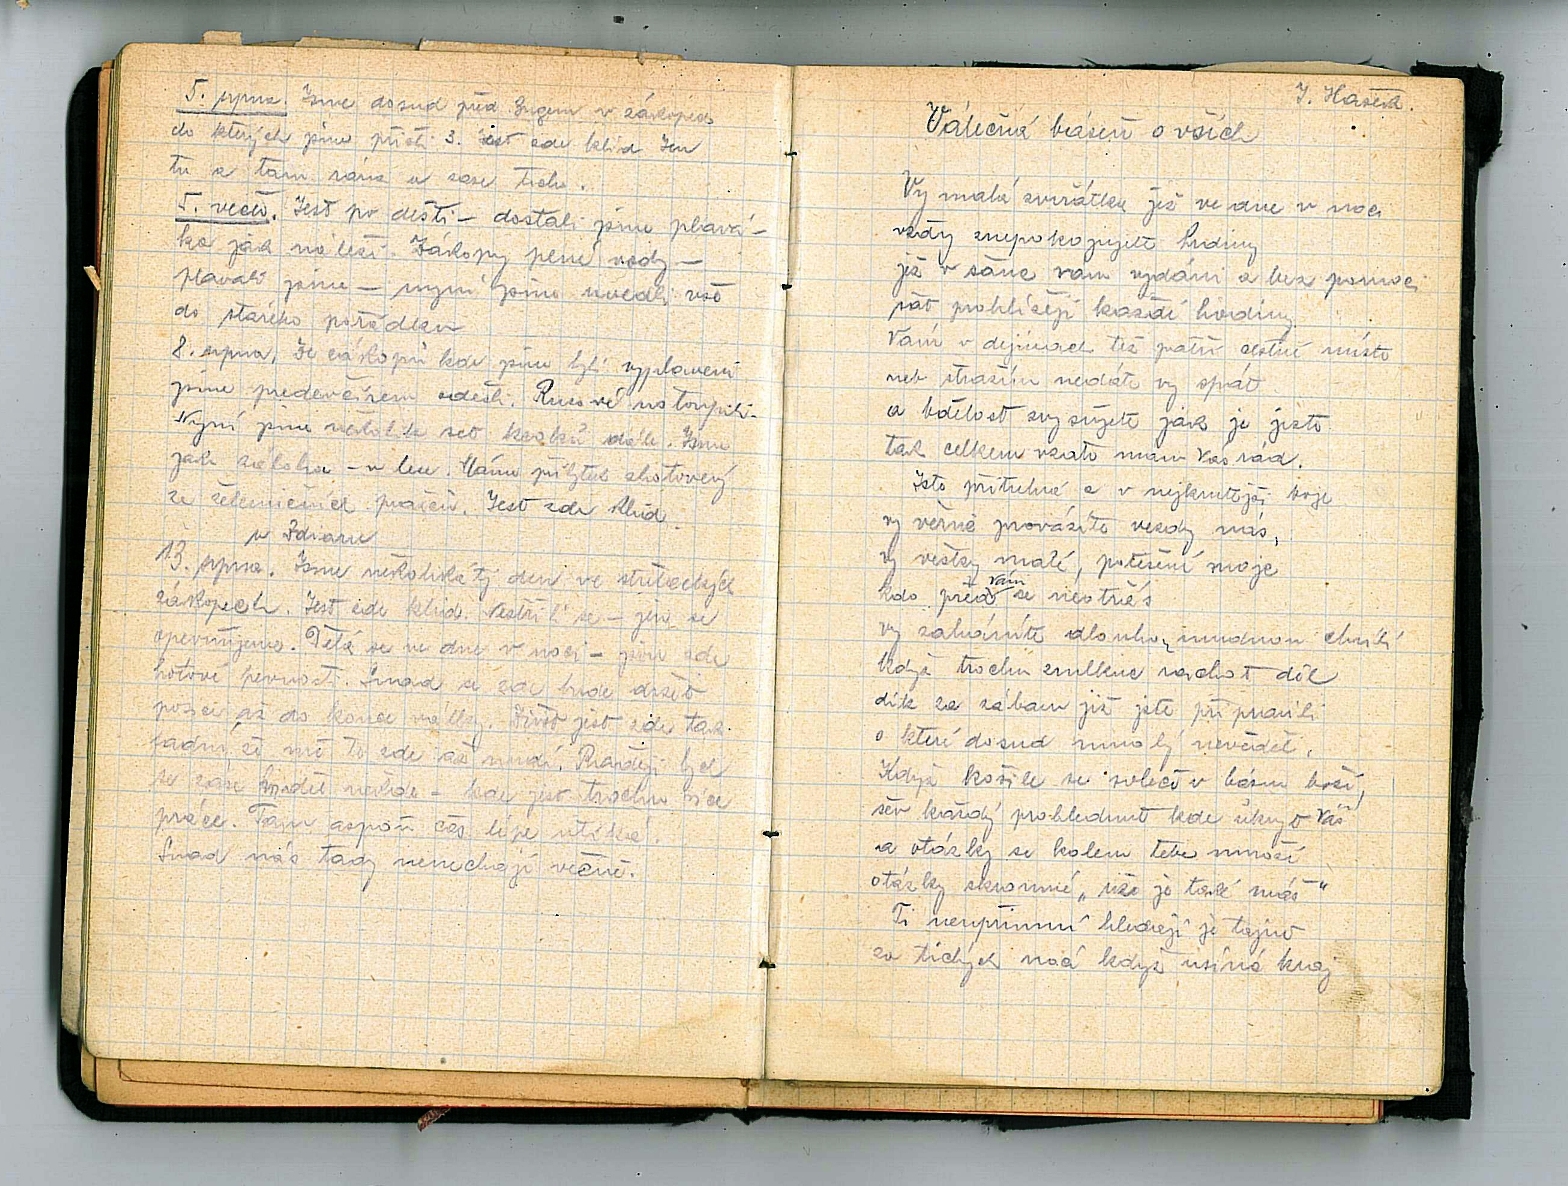 5. srpna. Jsme dosud před Bugem v zákopech
do kterých jsme přišli 3. Jest zde klid Jen
tu a tam rána a zase ticho.
5. večer. Jest po dešti – dostali jsme plavá-
ka jak náleží. Zákopy plné vody –
plavali jsme – nyní jsme uvedli vše
do starého pořádku
8. srpna. Ze zákopů kde jsme byli vyplaveni
jsme předevčírem odešli. Rusové ustoupili.
Nyní jsme několik set kroků dále. Jsme
jak záloha – v lese. Máme příbytek zhotovený
ze železničních pražců. Jest zde klid.
u Zdzar
13. srpna. Jsme několikátý den ve střeleckých
zákopech. Jest zde klid. Nestřílí se – jen se
opevňujeme. Dělá se ve dne v noci – jsou zde
hotové pevnosti. Snad se zde bude držet
posice až do konce války. Život jest zde tak
fádní, že mě to zde až nudí. Raději bych
se zase viděl někde – kde jest trochu více
práce. Tam aspoň čas lépe utíká.
Snad nás tady nenechají věčně.
J. Hašek.
Válečná báseň o vších
Vy malá zvířátka jež ve dne v noci
vždy znepokojujete hrdiny
již v šanc vám vydáni a bez pomoci
vás prohlížejí každé hodiny
Vám v dějinách též patří čestné místo
neb strážím nedáte vy spát
a bdělost zvyšujete jak je jisto
tak celkem vzato mám vás rád.
Jste přítulné a v nejkrutější boje
vy věrně provázíte vezdy nás,
vy vešky malé, potěšení moje
kdo před vám se neotřás
vy zaháníte dlouhou, nudnou chvíli
když trochu zmlkne rachot děl
dík za zábavu již jste připravili
o které dosud mnohý nevěděl.
Když košile se svléci v bázni boží,
sér každý prohlednout kde úkryt váš
a otázky se kolem tebe množí
otázky skromné „ zdo je také máš“
Ti neupřímní hledají je tajně
za tichých nocí když usíná kraj